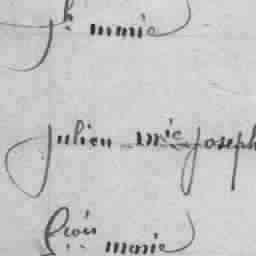 Jh marie
julien mie joseph
frcois marie